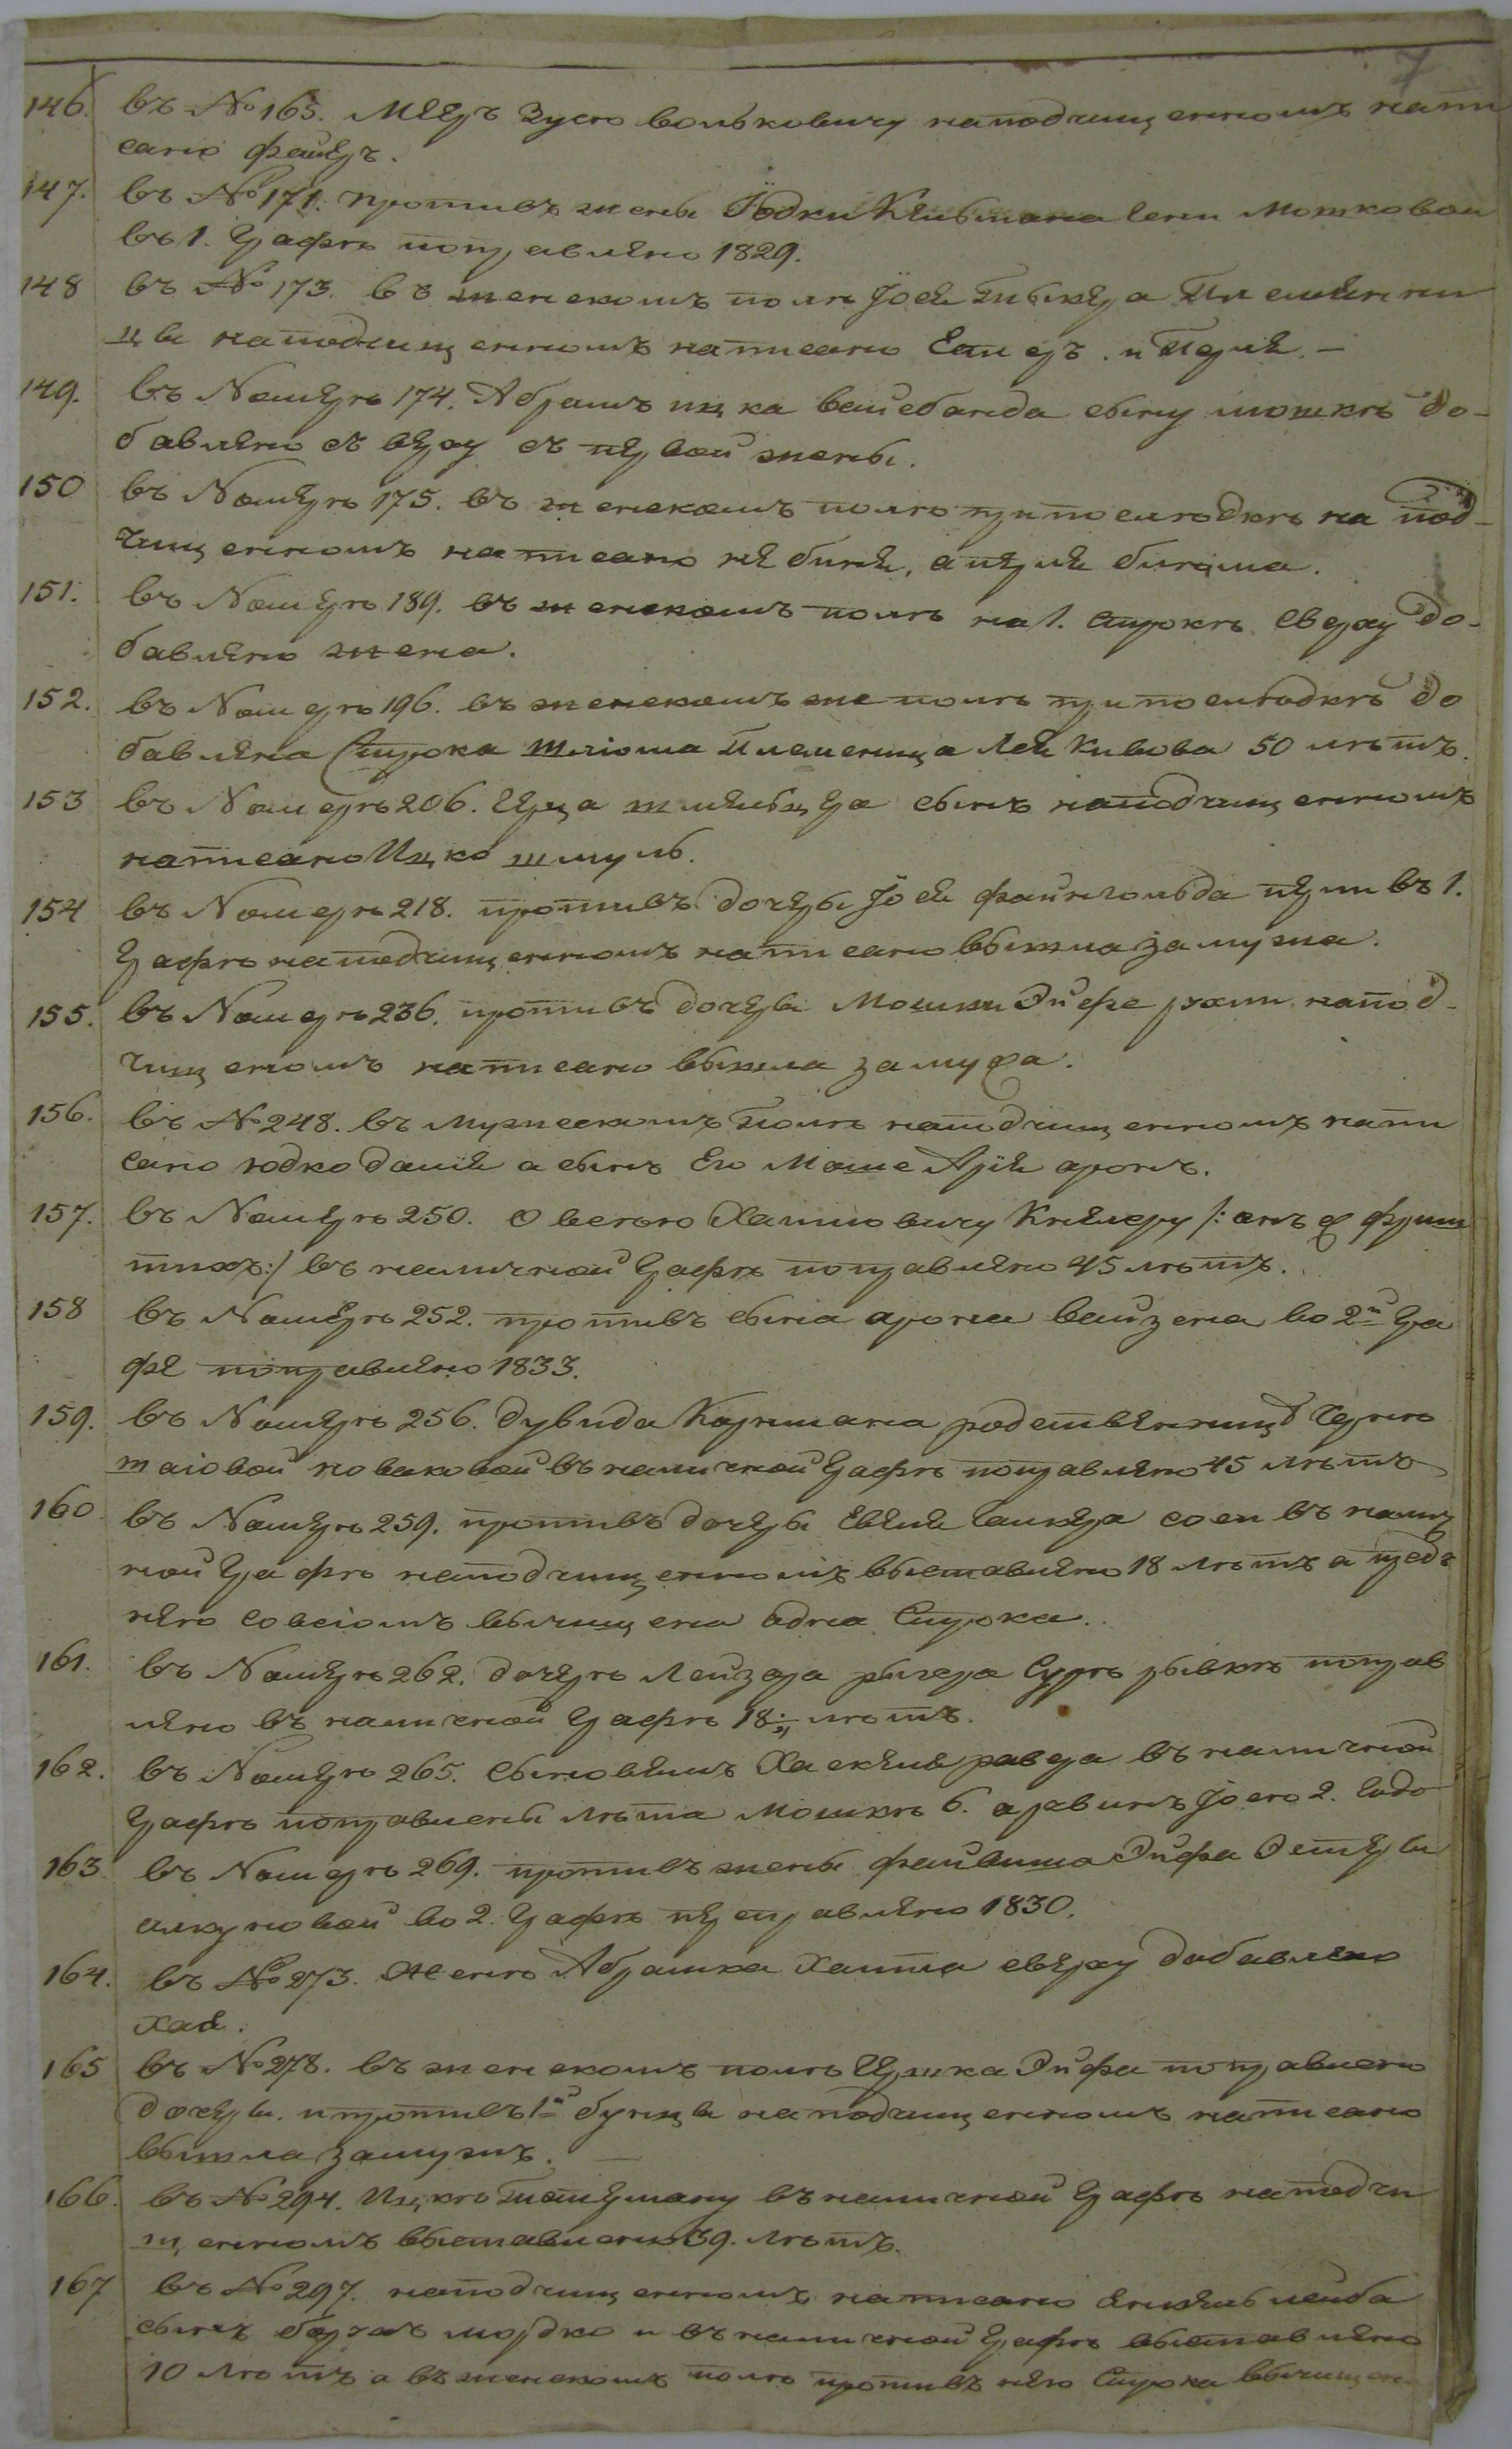 146. въ №165. Меер Зусю Вольковичу наподчищенномъ напи
сано фаидъ.
147. въ №171. противъ жены Іодки Кельмана Сени Мошковой
въ 1. графѣ поправлено 1829.
148 въ №173. въ женскомъ полѣ Іося племянни
цы наподчищенномъ написано и Перля. —
149. въ Номерѣ 174. Абрамъ ицка Вайсбанда сыну Мошкѣ до-
бавлено съ верху съ первой жены.
150 въ Номерѣ 175. въ женскомъ полѣ при послѣдкѣ на под-
чищенномъ написано не биня, а перля бинема.
151. въ Номерѣ 189. въ женскомъ полѣ на 1. строкѣ сверху до-
бавлено жена.
152. въ Номерѣ 196. въ женскомъ же полѣ при послѣдкѣ до
бавлена строка Шліома племеница Лея Кивова 50 лѣтъ.
153 въ Номерѣ 206. Герца сынъ наподчищенномъ
написано Ицко шмуль.
154 въ Номерѣ 218. противъ дочеры Іося файнгольда перли въ 1.
графѣ наподчищенномъ написано вышла замужа.
155. въ Номерѣ 236. противъ дочеры Мошки Эйфе рохли напод-
чищеномъ написано вышла замужа.
156. въ №248. въ мужескомъ полѣ наподчищенномъ напи
сано юдко даніе а сынъ Его Моше Арія аронъ.
157. въ Номерѣ 250. Овсею Хаимовичу Кнелеру /: онъ же
:/ въ наличной графѣ поправлено 45 лѣтъ.
158 въ Номерѣ 252. противъ сына арона вайзена во 2й гра
фе поправлено 1833.
159. въ Номерѣ 256. Дувида Кормана родственницѣ Черно
таіовой новаковой въ наличной графѣ поправлено 45 лѣтъ
160 въ Номерѣ 259. противъ дочеры Евеля соси въ налич
ной графѣ наподчищенномъ выставлено 18 лѣтъ а предъ
него совсіомъ вычищена одна Строка.
161. въ Номерѣ 262. дочерѣ Лейзора ригера Сурѣ рывкѣ поправ
лено въ наличной графѣ 18 лѣтъ.
162. въ Номерѣ 265. сыновямъ Хаскеля равера въ наличной
графѣ поправлены лѣта Мошкѣ 6. а равинъ Іосю 2. Годо
163 въ Номерѣ 269. противъ жены файвиша Эйфа Эстеры
во 2. графѣ переправлено 1830.
164. въ №273. Женѣ Абрамка Хаита сверху добавлено
хая.
165 въ №278. въ женскомъ полѣ Гершка Эйфа поправлено
дочеры. и противъ 1й бунцы на подчищенномъ написано
вышла замужъ. —
166. въ №294. Ицкѣ въ наличной графѣ наподчи
щенномъ выставлено 39. лѣтъ.
167 въ №297. наподчищенномъ написано Янкель лейба
сынъ борохъ мордко и въ наличной графѣ выставлено
10 лѣтъ а въ женскомъ полѣ противъ него Строка вычищен